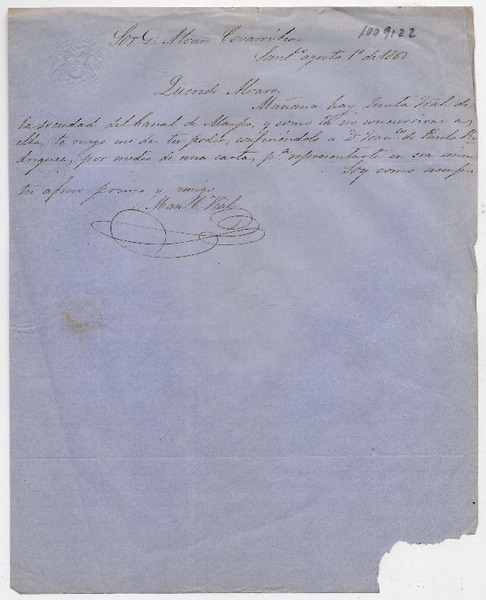 Sor Dn Alvaro Covarrúbias
1009122
Santo agosto 1o de 1867
Querido Alvaro,
Mañana hay Junta Jral de
la sociedad del Canal de Maipo, y como tú no concurrirás a
ella, te ruego me des tu poder, confiriéndolo a Dn Franco de Paula Ro
driguez, por medio de una carta, pa representarte en esa reunion
Soy como siempre
tu afmo primo y amigo
Manl C. Vial